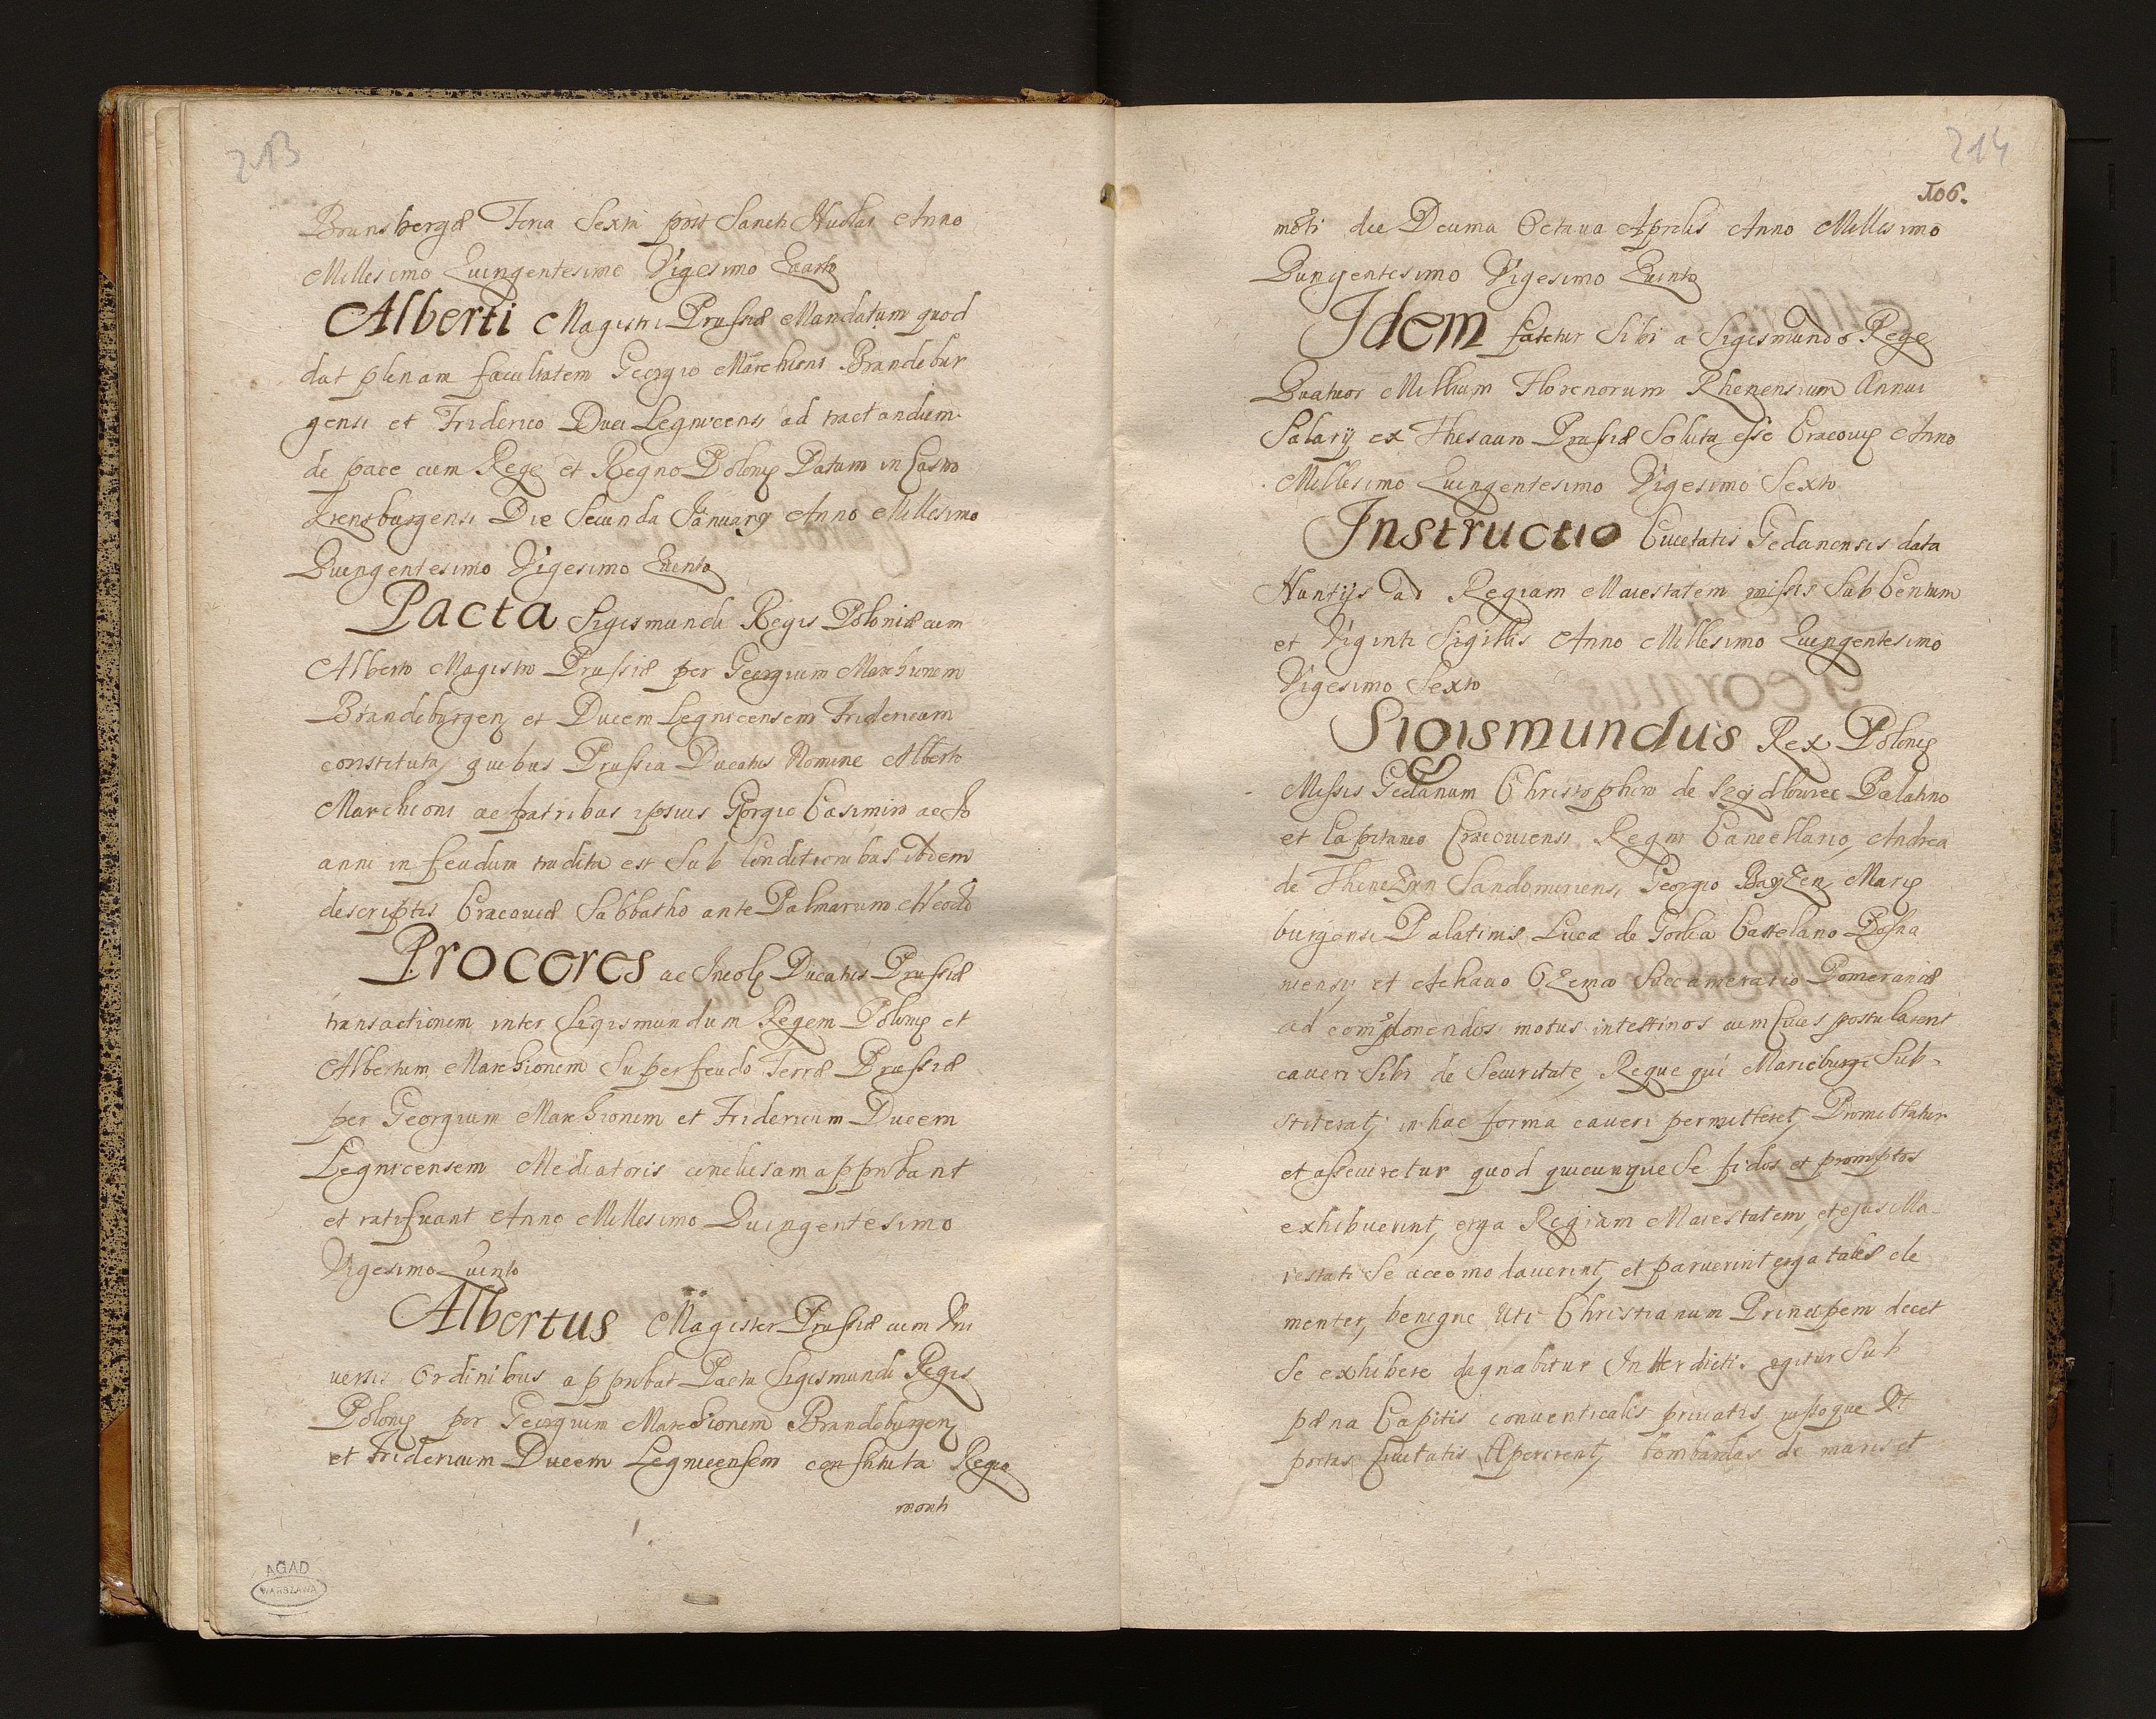 213
Brunsbergæ Feria Sexta post Sancti Nicolai Anno
Millesimo Quingentesimo Vigesimo Quarto
Alberti Magistri Prussiæ Mandatum quod
dat plenam facultatem Georgio Marchioni Brandebur
gensi et Friderico Duci Legnicensi ad tractandum
de pace cum Rege et Regno Poloniæ Datum in Castro
Die Secunda January Anno Millesimo
Quingentesimo Vigesimo Quinto
Pacta Sigismundi Regis Poloniæ cum
Alberto Magistro Prussiæ per Georgium Marchionem
Brandeburgen et Ducem Legnicensem Fridericum
constituta, quibus Prussia Ducatus Nomine Alberto
Marchioni ac fratribus ipsius Gorgio Casimiro ac Jo
anni in feudum tradita est Sub Conditionibus ibidem
descriptis Cracoviæ Sabbatho ante Palmarum
Proceres ac Incolæ Ducatus Prussiæ
transactionem inter Sigismundum Regem Poloniæ et
Albertum Marchionem Super feudo Terræ Prussiæ
per Georgium Marchionem et Fridericum Ducem
Legnicensem Mediatoris conclusam approbant
et ratificant Anno Millesimo Quingentesimo
Vigesimo Quinto
Albertus Magister Prussiæ cum Vni
uersis Ordinibus approbat Pacta Sigismundi Regis
Poloniæ per Georgium Marchionem Brandeburgen
et Fridericum Ducem Legnicensem constituta Regio
monti
AGAD
WARSZAWA
214
106.
monti die Decima Octaua Aprilis Anno Millesimo
Quingentesimo Vigesimo Quinto
Idem fatetur Sibi a Sigismundo Rege
Quatuor Millium Florenorum Rhenensium Annui
Salarij ex Thesauro Prussiæ Soluta esse Cracouiæ Anno
Millesimo Quingentesimo Vigesimo Sexto
Instructio Ciuitatis Gedanensis data
Nuntijs ad Regiam Maiestatem missis Sub Centum
et Viginti Sigillis Anno Millesimo Quingentesimo
Vigesimo Sexto
Sigismundus Rex Poloniæ
Missis Gedanum Christophoro de Szydlowiec Palatino
et Capitaneo Cracouiensi Regni Cancellario, Andrea
de Thenczyn Sandomiriensi, Georgio Bayzen Mariæ
burgensi Palatinis Luca de Gorka Castelano Posna
niensi, et Achatio Czema Succamerario Pomeraniæ
ad componendos motus intestinos cum Ciues postularent
caueri Sibi de Securitate, Reque qui Marieburgi Sub-
stiterat, in hac forma caueri permitteret, Promittatur
et asseuiretur quod quicunque Se fidos et promptos
exhibuerint, erga Regiam Maiestatem, et ejus Ma-
iestati Se accomodauerint, et paruerint erga tales cle
menter, benigne Uti Christianum Principem decet
Se exhibere dignabitur Interdicti. igitur Sub
pæna Capitis conuenticulis priuatis, jussoque Vt
portas Ciuitatis Aperirent, bombardas de muris et